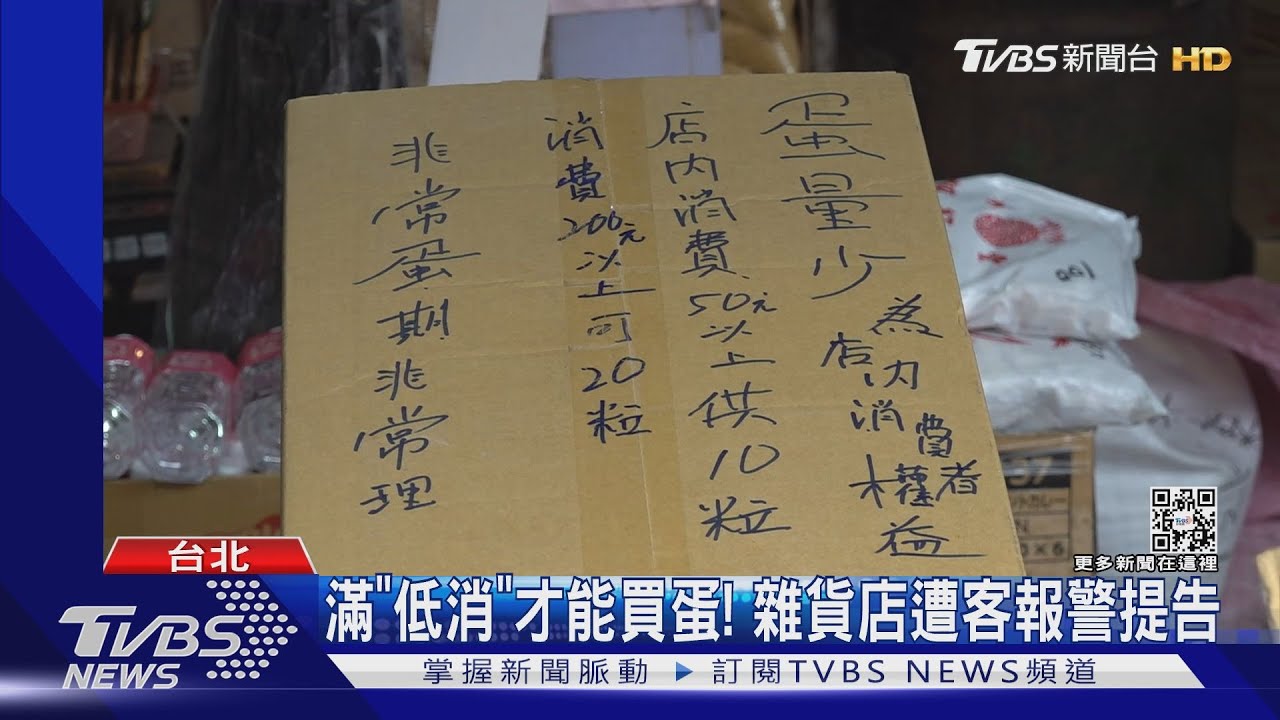 TVBS新聞台 HD
蛋量少
為
店內消費者
權益
店內消費50元以上供10粒
消費200元以上可20粒
非常蛋期非常理
100
更多新聞在這裡
台北
滿"低消"才能買蛋! 雜貨店遭客報警提告
TVBS NEWS
掌握新聞脈動 ▶ 訂閱TVBS NEWS頻道